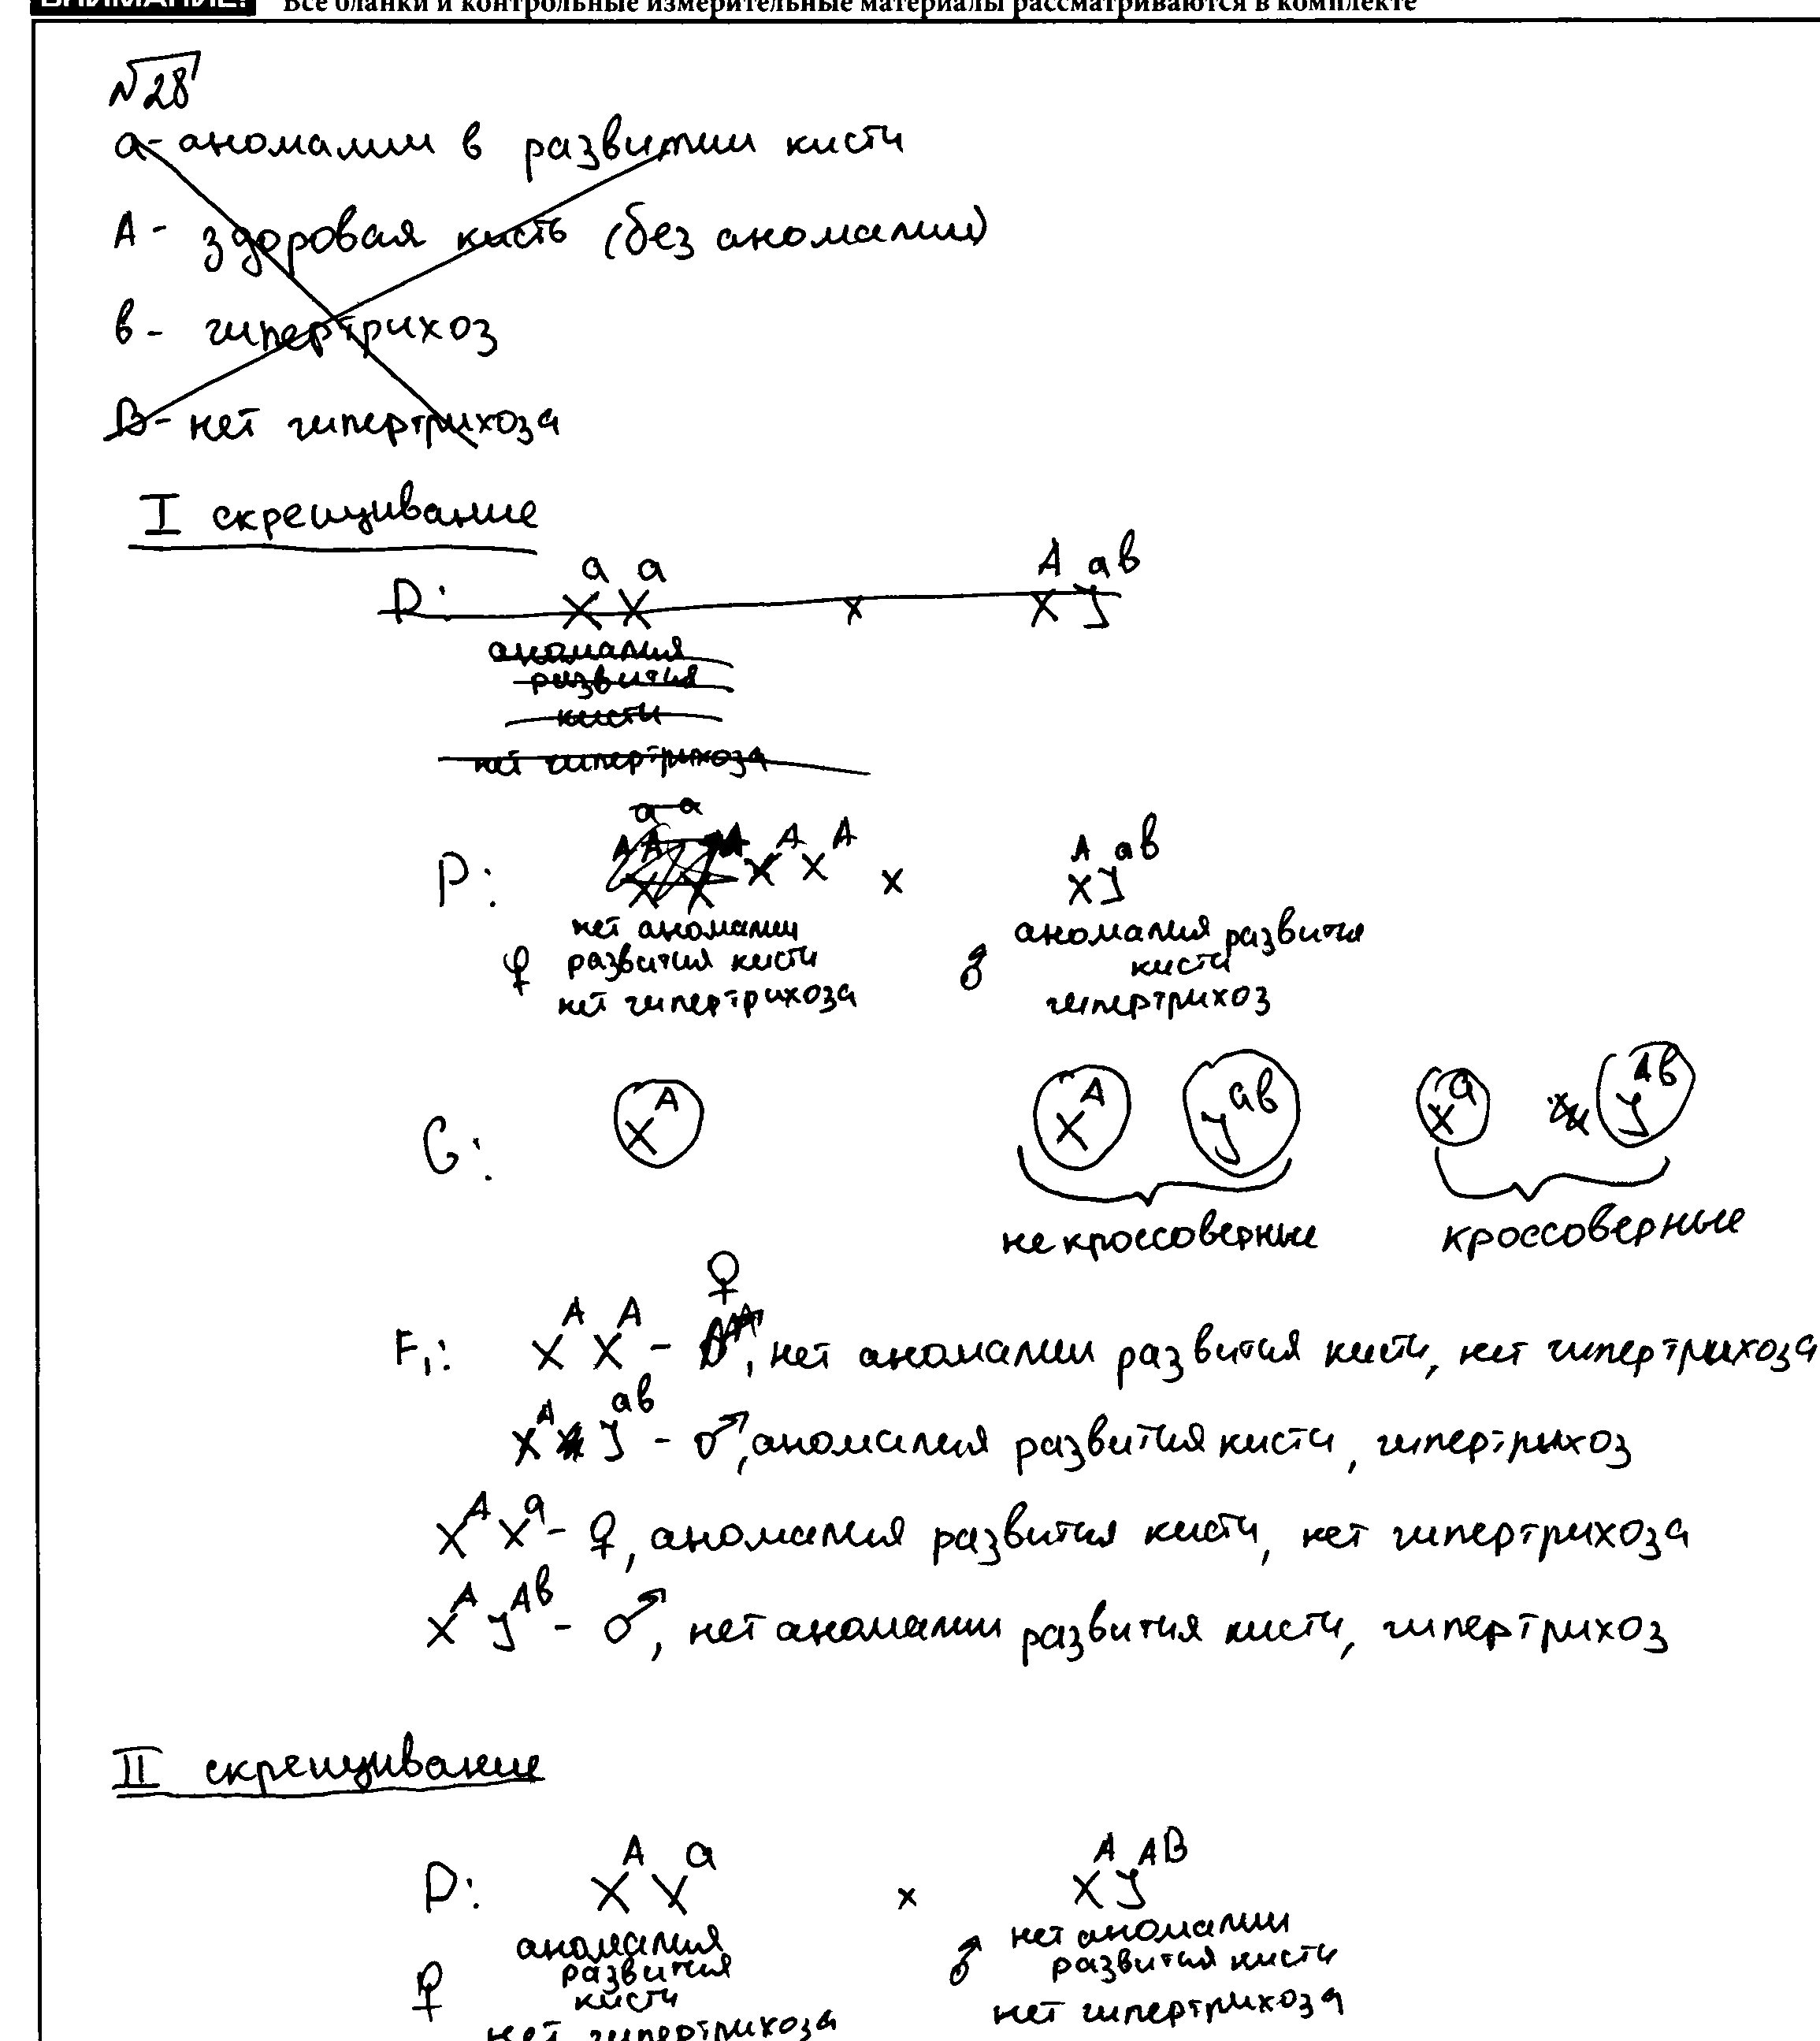 ВНИМАНИЕ! Все бланки и контрольные измерительные материалы рассматриваются в комплекте
№28
а - аномалии в развитии кисти
А - здоровая кисть (без аномалии)
в - гипертрихоз
В - нет гипертрихоза
I скрещивание
P: XᵃXᵃ x XᴬYᵃᵇ
аномалия
развития
кисти
нет гипертрихоза
а а
P: XᴬXᴬ x XᴬYᵃᵇ
♀ нет аномалии развития кисти нет гипертрихоза
♂ аномалия развития кисти гипертрихоз
G: Xᴬ Xᴬ Yᵃᵇ Xᵃ Yᴬᵇ
некроссоверные кроссоверные
F₁: XᴬXᴬ - ♀, нет аномалии развития кисти, нет гипертрихоза
XᴬYᵃᵇ - ♂, аномалия развития кисти, гипертрихоз
XᴬXᵃ - ♀, аномалия развития кисти, нет гипертрихоза
XᴬYᴬᵇ - ♂, нет аномалии развития кисти, гипертрихоз
II скрещивание
P: XᴬXᵃ x XᴬYᴬᴮ
♀ аномалия развития кисти нет гипертрихоза
♂ нет аномалии развития кисти нет гипертрихоза